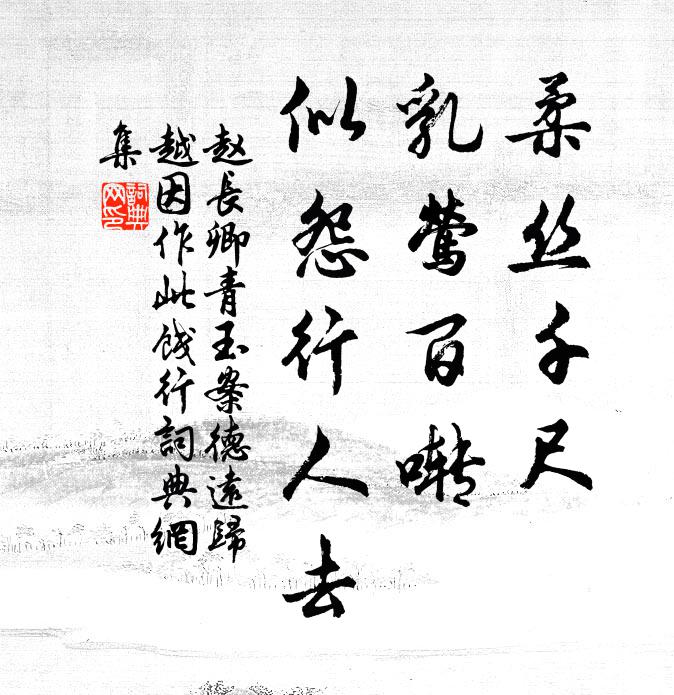 柔丝千尺
乳莺百啭
似怨行人去
赵長卿青玉案德遠歸
越因作此餞行詞典網
集
詞典
网印